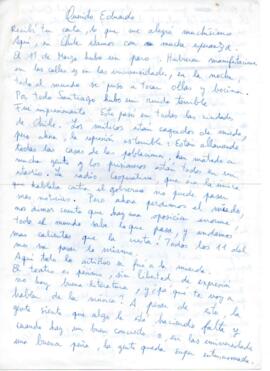 Querido Eduardo:
Recibí tu carta, lo que me alegró muchísimo.
Aquí, en Chile estamos con mucha esperanza.
El 11 de Mayo hubo un paro. Hubieron manifestaciones
en las calles, en las universidades, en la noche
todo el mundo se puso a tocar ollas y bocinas.
Por todo Santiago hubo un ruido terrible
Fue impresionante. Esto pasó en todas las ciudades
de Chile. Los milicos están cagados de miedo,
pero ahora la represión es terrible: Están allanando
todas las casas de las poblaciones, han matado a
mucha gente y los prisioneros están todos en un
estadio. La radio Cooperativa, que era la única
que hablaba contra el gobierno no puede pasar
más noticias. Pero ahora perdimos el miedo,
nos dimos cuenta que hay una oposición enorme
todo el mundo sabe lo que pasa, y andamos
más calientes que la Todos los 11 del
mes va pasar lo mismo.
Aquí todo lo artístico se fue a la mierda.
El teatro es pésimo, sin libertad de expresión
no hay buena literatura, y ¿pa que te voy a
hablar de la música? A pesar de esto, la
gente siente que algo le está haciendo falta y
cuando hay un buen concierto o, en las universidades
una buena peña, la gente queda super entusiasmada.